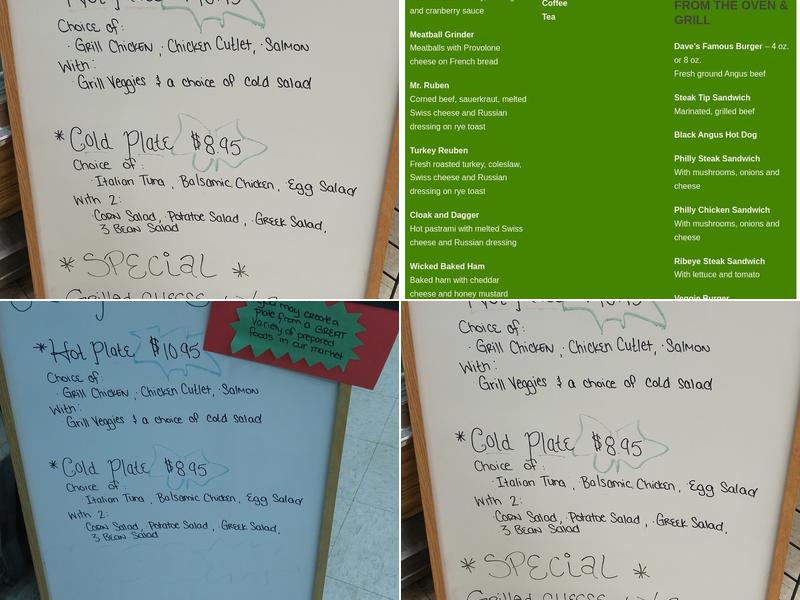 Choice of:
· Grill Chicken, · Chicken Cutlet, · Salmon
With:
Grill Veggies & a choice of cold salad
* Cold Plate $8.95
Choice of:
· Italian Tuna, Balsamic Chicken, · Egg Salad
With 2:
· Corn Salad, · Potatoe Salad, · Greek Salad,
3 Bean Salad
* Special *
Grilled cheese
and cranberry sauce
Meatball Grinder
Meatballs with Provolone
cheese on French bread
Mr. Ruben
Corned beef, sauerkraut, melted
Swiss cheese and Russian
dressing on rye toast
Turkey Reuben
Fresh roasted turkey, coleslaw,
Swiss cheese and Russian
dressing on rye toast
Cloak and Dagger
Hot pastrami with melted Swiss
cheese and Russian dressing
Wicked Baked Ham
Baked ham with cheddar
cheese and honey mustard
Coffee
Tea
FROM THE OVEN &
GRILL
Dave's Famous Burger – 4 oz.
or 8 oz.
Fresh ground Angus beef
Steak Tip Sandwich
Marinated, grilled beef
Black Angus Hot Dog
Philly Steak Sandwich
With mushrooms, onions and
cheese
Philly Chicken Sandwich
With mushrooms, onions and
cheese
Ribeye Steak Sandwich
With lettuce and tomato
Veggie Burger
you may create a
Plate from a GREAT
variety of prepared
foods in our market
* Hot Plate $10.95
Choice of:
· Grill Chicken, · Chicken Cutlet, · Salmon
With:
Grill Veggies & a choice of cold salad
* Cold Plate $8.95
Choice of:
· Italian Tuna, Balsamic Chicken, Egg Salad
With 2:
· Corn Salad, Potatoe Salad, · Greek Salad,
3 Bean Salad
Hot Plate $10.95
Choice of:
· Grill Chicken, · Chicken Cutlet, · Salmon
With:
Grill Veggies & a choice of cold salad
* Cold Plate $8.95
Choice of:
· Italian Tuna, Balsamic Chicken, · Egg Salad
With 2:
· Corn Salad, · Potatoe Salad, · Greek Salad,
3 Bean Salad
* Special *
Grilled cheese